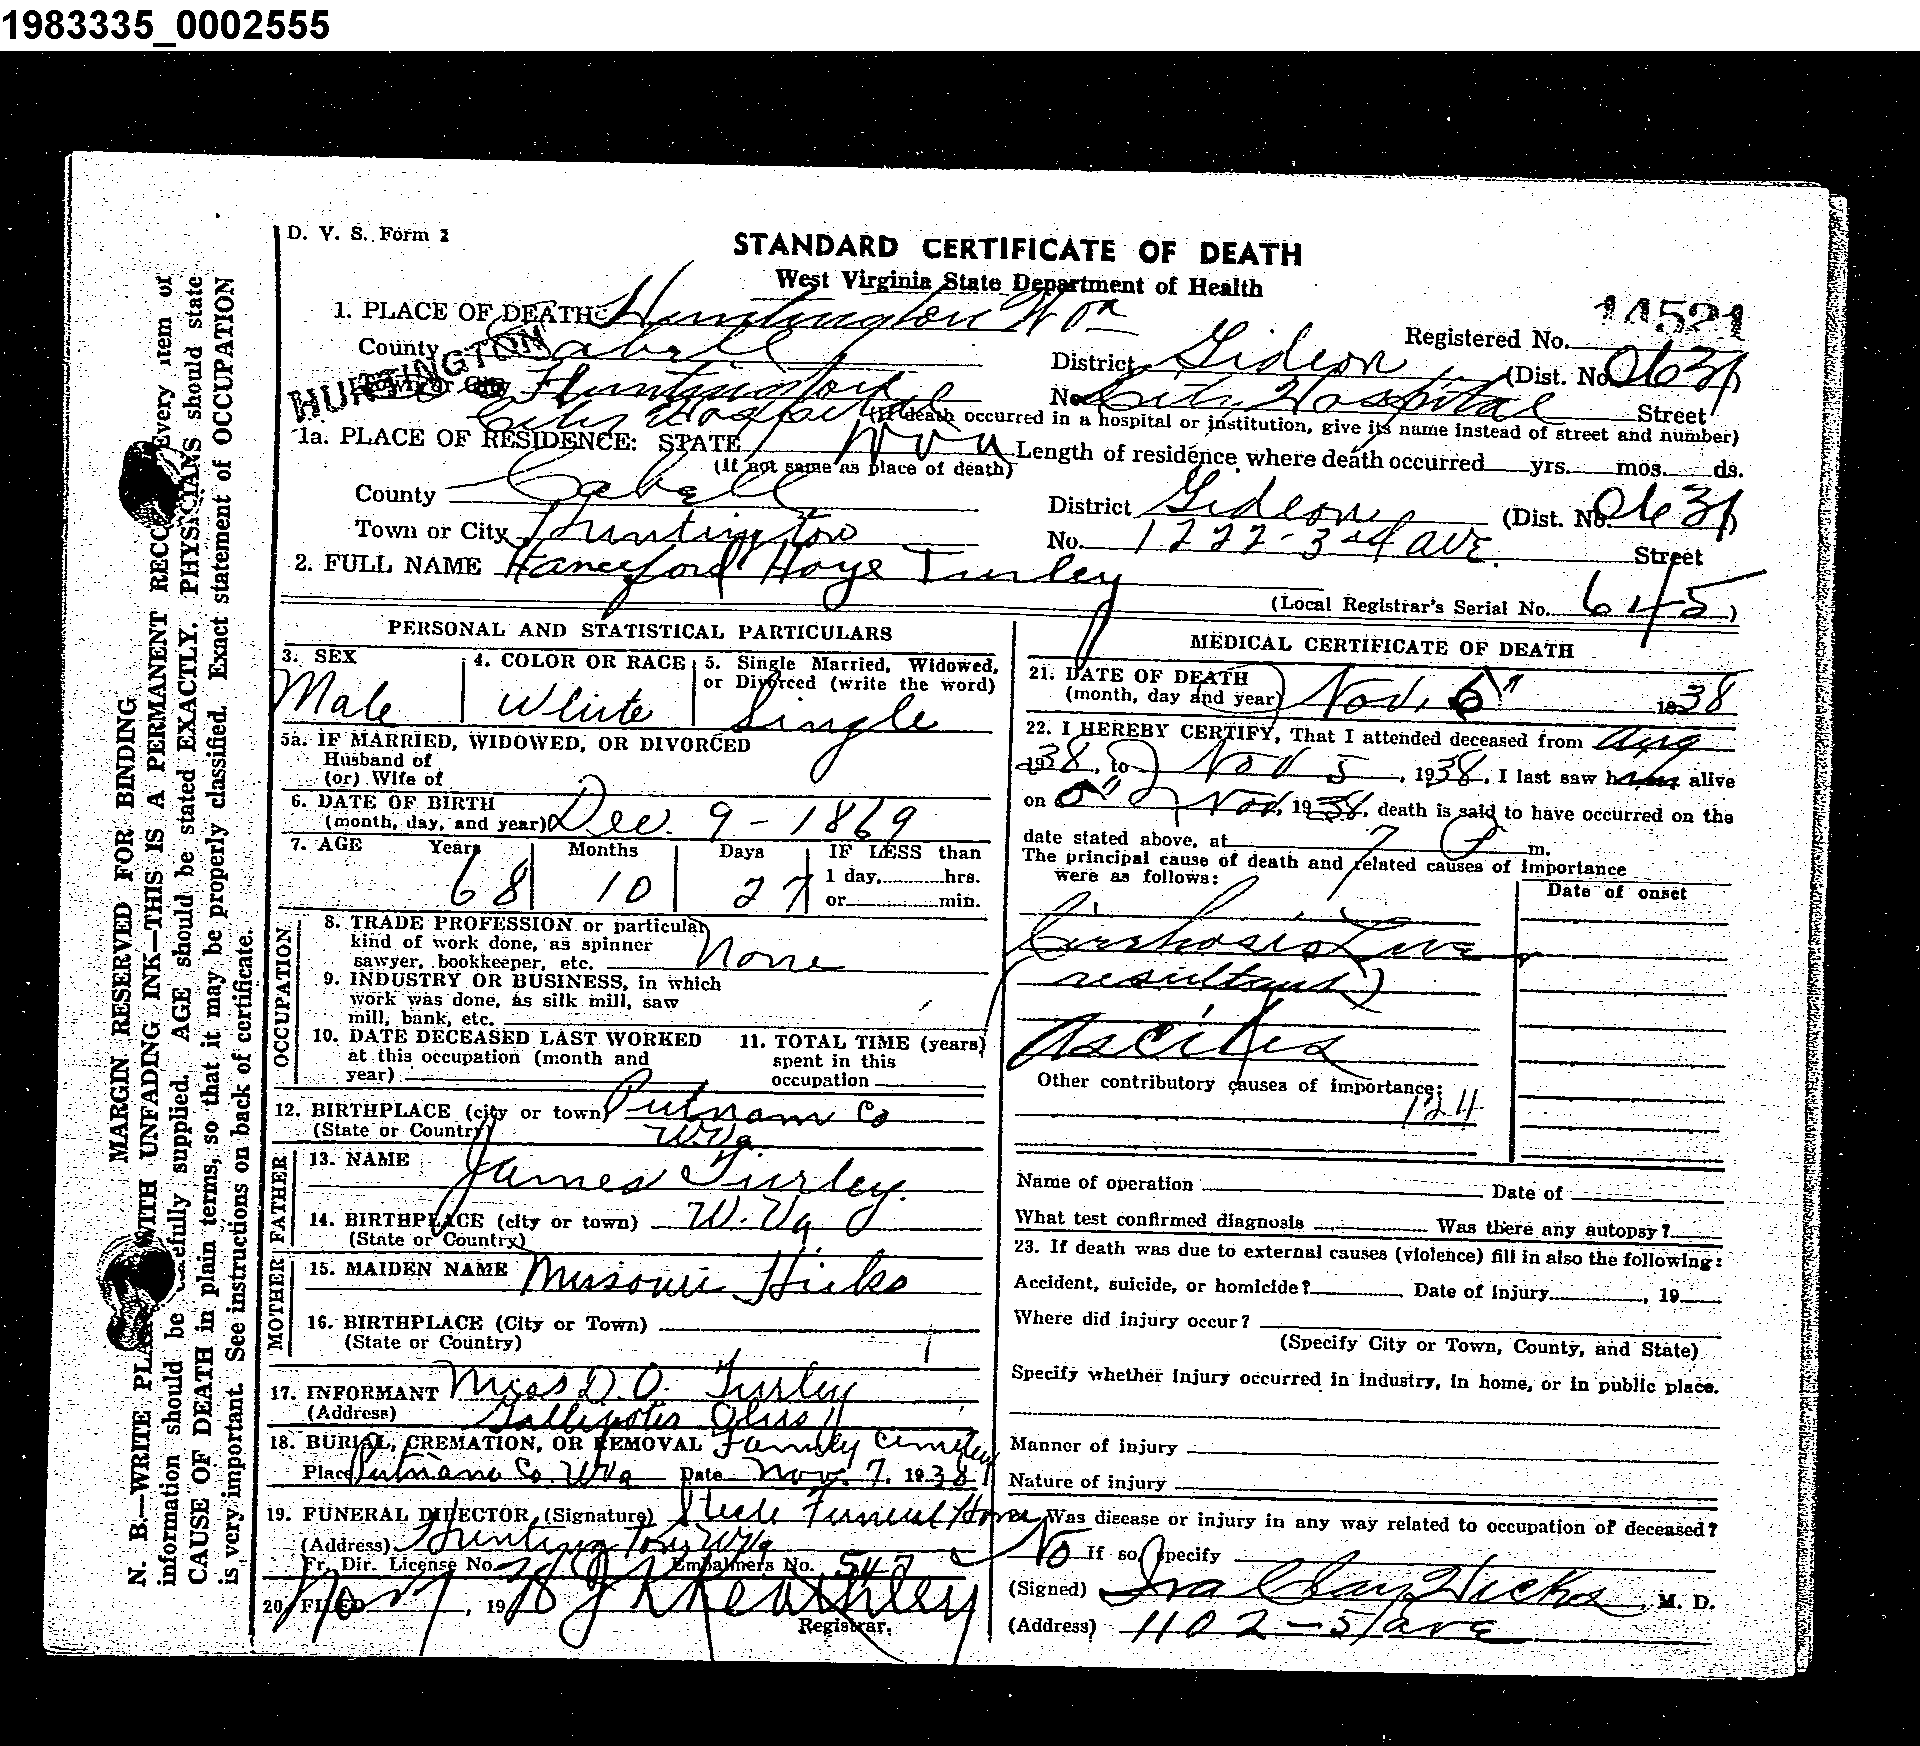 1983335_0002555
D. V. S. Form 2
STANDARD CERTIFICATE OF DEATH
West Virginia State Department of Health
1. PLACE OF DEATH: Huntington W Va
Registered No. 14521
County Cabell
District Gideon (Dist. No. 0631)
HUNTINGTON
Town or City Huntington
No. City Hospital Street
City Hospital (If death occurred in a hospital or institution, give its name instead of street and number)
1a. PLACE OF RESIDENCE: STATE W Va Length of residence where death occurred yrs. mos. ds.
(If not same as place of death)
County Cabell
District Gideon (Dist. No. 0631)
Town or City Huntington
No. 1222-3rd Ave. Street
2. FULL NAME Hoye Turley
(Local Registrar's Serial No. 645)
PERSONAL AND STATISTICAL PARTICULARS
3. SEX Male
4. COLOR OR RACE White
5. Single Married, Widowed, or Divorced (write the word) Single
5a. IF MARRIED, WIDOWED, OR DIVORCED
Husband of
(or) Wife of
6. DATE OF BIRTH
(month, day, and year) Dec. 9 - 1869
7. AGE Years 68 Months 10 Days 27 IF LESS than
1 day, hrs.
or min.
OCCUPATION
8. TRADE PROFESSION or particular
kind of work done, as spinner
sawyer, bookkeeper, etc. None
9. INDUSTRY OR BUSINESS, in which
work was done, as silk mill, saw
mill, bank, etc.
10. DATE DECEASED LAST WORKED
at this occupation (month and
year)
11. TOTAL TIME (years)
spent in this
occupation
12. BIRTHPLACE (city or town) Putnam Co
(State or Country) W.Va
FATHER
13. NAME James Turley.
14. BIRTHPLACE (city or town) W. Va
(State or Country)
MOTHER
15. MAIDEN NAME Missouri Hicks
16. BIRTHPLACE (City or Town)
(State or Country)
17. INFORMANT Miss D. O. Turley
(Address) Gallipolis Ohio
18. BURIAL, CREMATION, OR REMOVAL Family Cemetery
Place Putnam Co. W Va Date Nov. 7. 1938
19. FUNERAL DIRECTOR (Signature) Steele Funeral Home
(Address) Huntington W Va
Fr. Dir. License No. Embalmers No. 547
20. FILED Nov 7, 19
Registrar.
MEDICAL CERTIFICATE OF DEATH
21. DATE OF DEATH
(month, day and year) Nov. 6" 1938
22. I HEREBY CERTIFY, That I attended deceased from Aug
1938, to Nov 5, 1938, I last saw him alive
on 5" Nov. 1938, death is said to have occurred on the
date stated above, at 7 P m.
The principal cause of death and related causes of importance
were as follows:
Date of onset
Cirrhosis Liver
(resultant)
Ascites
Other contributory causes of importance:
124
Name of operation Date of
What test confirmed diagnosis Was there any autopsy?
23. If death was due to external causes (violence) fill in also the following:
Accident, suicide, or homicide? Date of injury , 19
Where did injury occur?
(Specify City or Town, County, and State)
Specify whether injury occurred in industry, in home, or in public place.
Manner of injury
Nature of injury
Was disease or injury in any way related to occupation of deceased?
No If so, specify
(Signed) Ira Clay Hicks M. D.
(Address) 1102-5/ave
MARGIN RESERVED FOR BINDING
N. B.—WRITE WITH UNFADING INK—THIS IS A PERMANENT Every item of
information should be carefully supplied. AGE should be stated EXACTLY. PHYSICIANS should state
CAUSE OF DEATH in plain terms, so that it may be properly classified. Exact statement of OCCUPATION
is very important. See instructions on back of certificate.